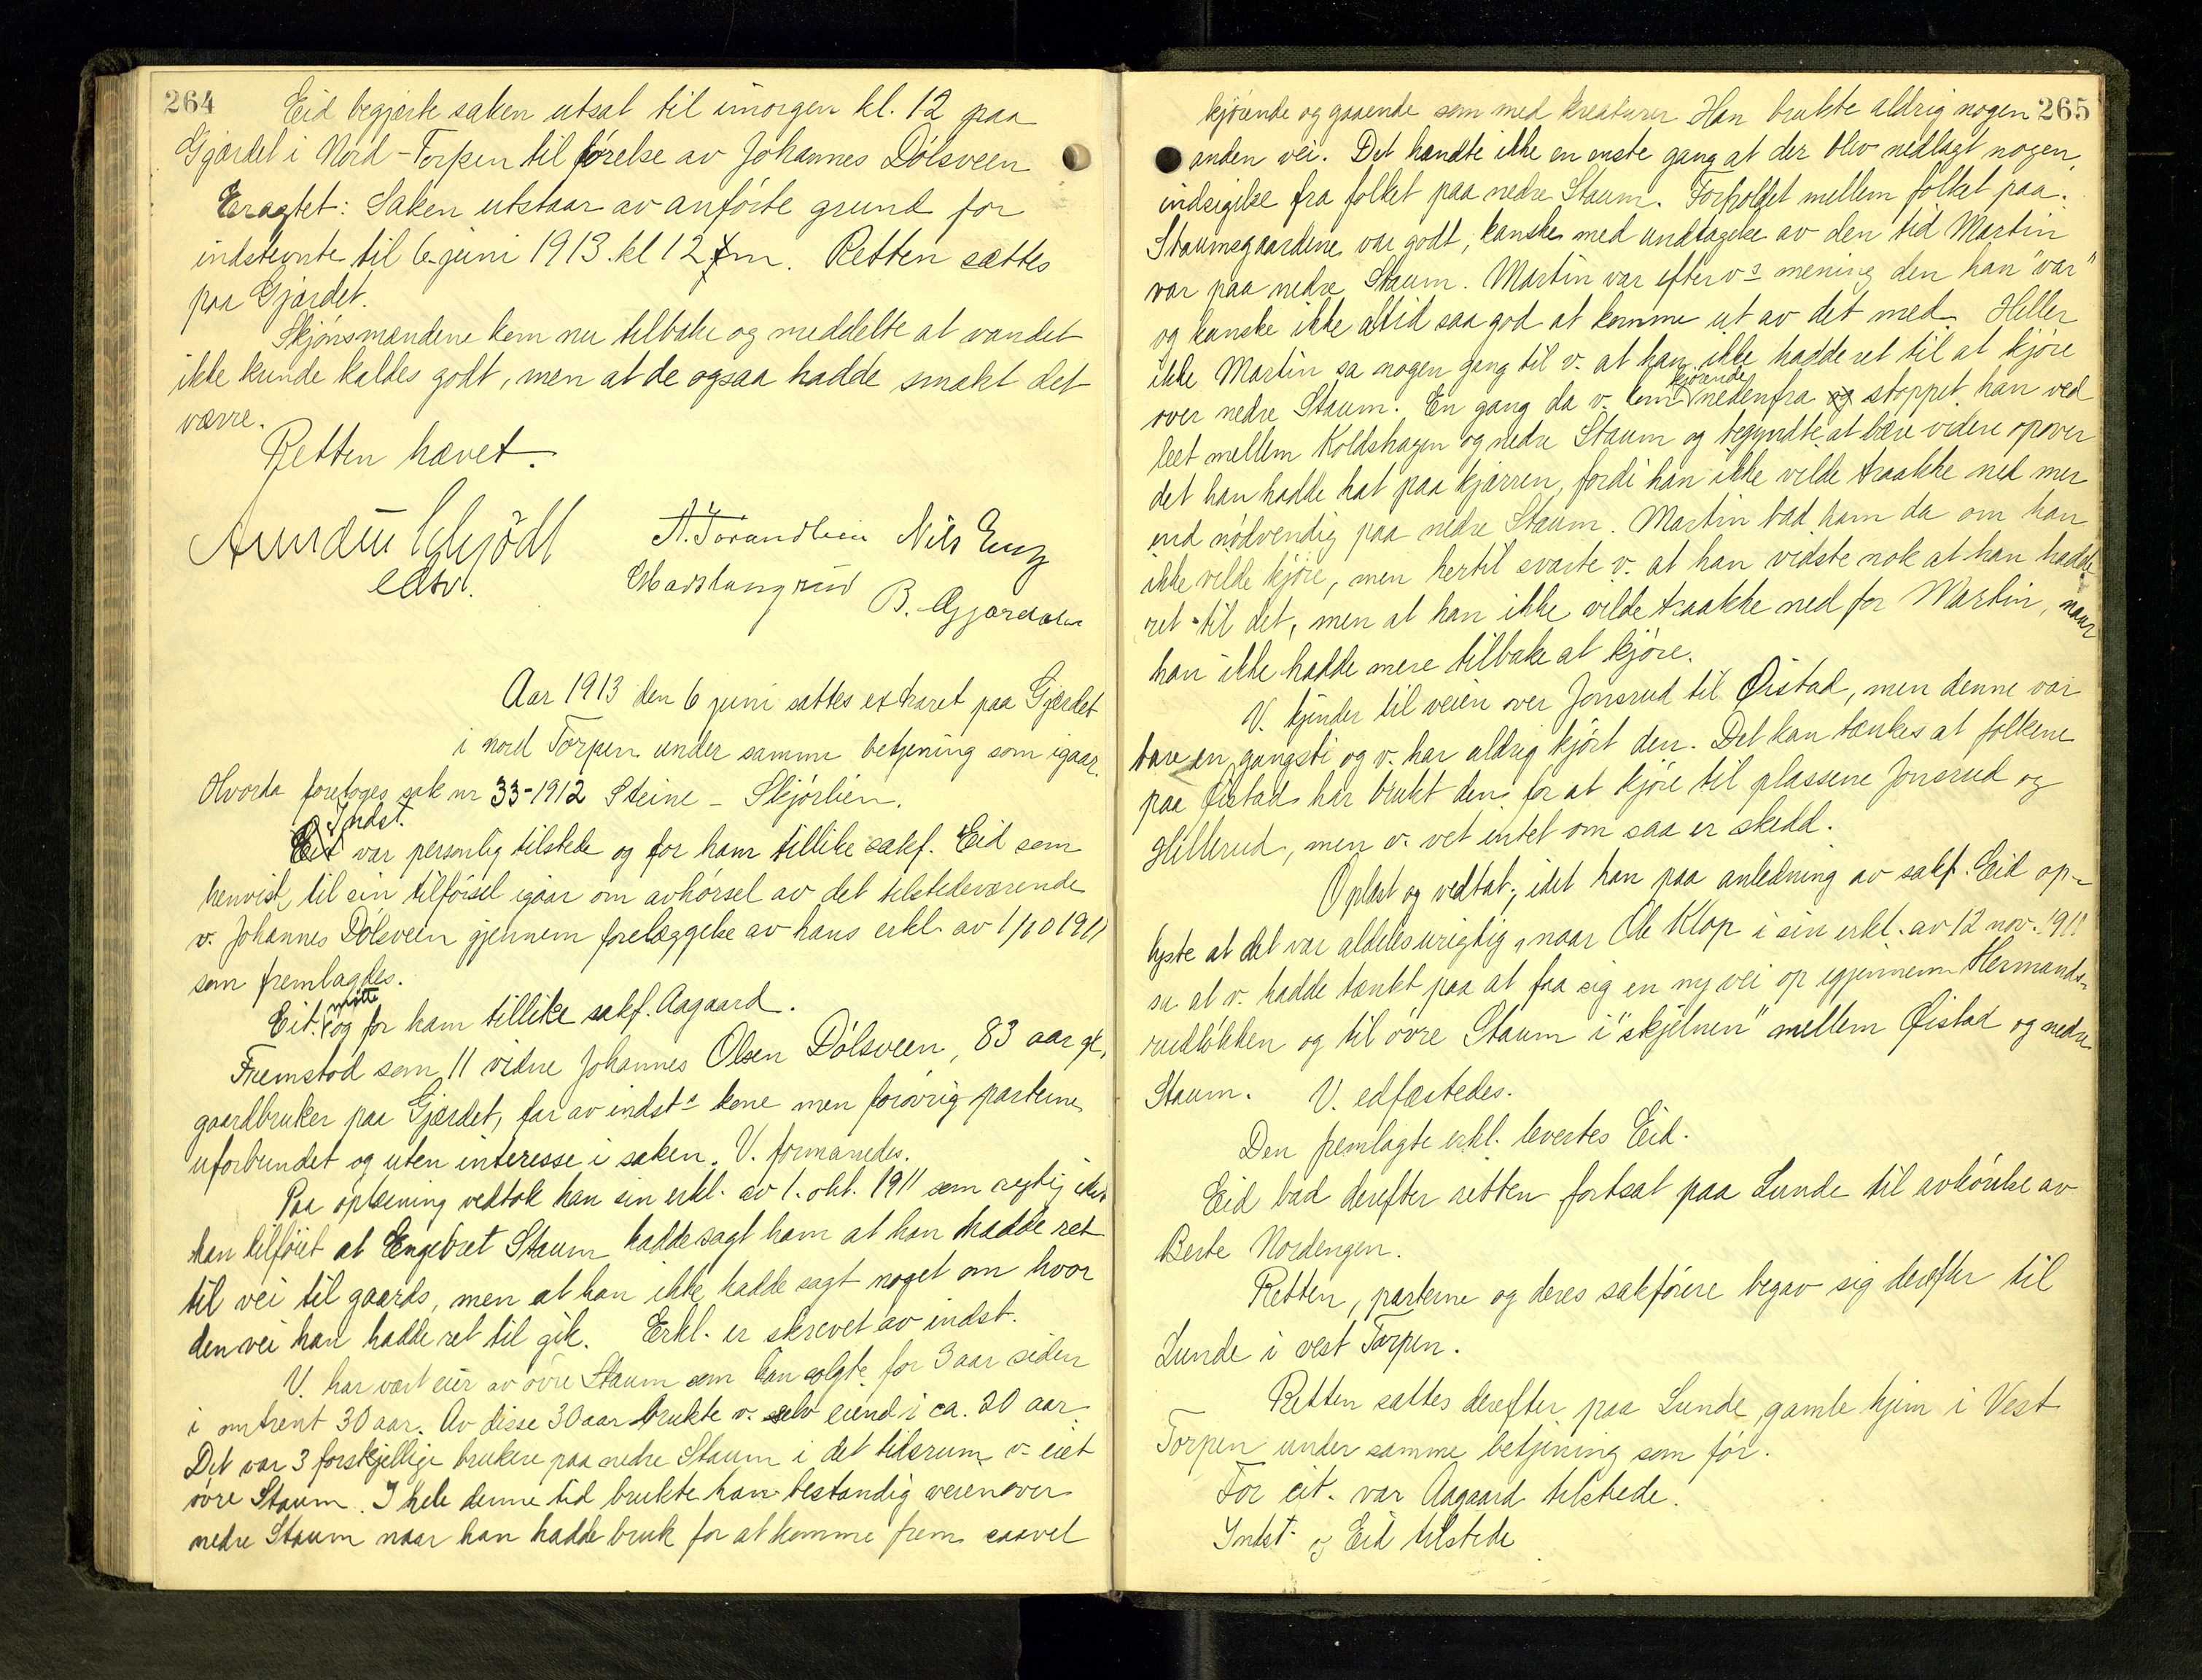 264
Eid begjærte saken utsat til imorgen kl. 12 paa
Gjærdet i Nord-Torpen til førelse av Johannes Dølsveen
Eragtet: Saken utstaar av anførte grund for
indstevnte til 6 juni 1913 kl 12 fm. Retten sættes
paa Gjærdet.
Skjønsmændene kom nu tilbake og meddelte at vandet
ikke kunde kaldes godt, men at de ogsaa hadde smakt det
værre.
Retten hævet.
Schjödt
edsv.
Nils Eng
Aar 1913 den 6 juni sattes extraret paa Gjærdet
i nord Torpen under samme betjening som igaar.
Hvorda foretoges sak nr 33-1912 Steine - Skjørlien.
Indst.
Eit var personlig tilstede og for ham tillike sakf. Eid som
henviste til sin tilførsel igaar om avhørsel av det tilstedeværende
v. Johannes Dølsveen gjennem forelæggelse av hans erkl. av 1/10 1911
som fremlagdes.
møtte
Cit. og for ham tillike sakf. Aagaard.
Fremstod som 11 vidne Johannes Olsen Dølsveen, 83 aar gl,
gaardbruker paa Gjærdet, far av indsts kone men forøvrig parterne
uforbundet og uten interesse i saken. V. formanedes.
Paa oplæsning vedtok han sin erkl. av 1. okt. 1911 som rigtig idet
han tilføiet at Engebret Staum hadde sagt ham at han hadde ret
til vei til gaards, men at han ikke hadde sagt noget om hvor
den vei han hadde ret til gik. Erkl. er skrevet av indst.
V. har vært eier av øvre Staum som han solgte for 3 aar siden
i omtrent 30 aar. Av disse 30 aar brukte v. selv eiend i ca. 20 aar.
Det var 3 forskjellige brukere paa nedre Staum i det tidsrum v. eiet
øvre Staum. I hele denne tid brukte han bestandig veien over
nedre Staum naar han hadde bruk for at komme frem saavel
265
kjørende og gaaende som med kreaturer Han brukte aldrig nogen
anden vei. Det hændte ikke en eneste gang at der blev nedlagt nogen
indsigelse fra folket paa nedre Staum. Forholdet mellem folket paa
Staumsgaardene var godt, kanske med undtagelse av den tid Martin
var paa nedre Staum. Martin var efter vs mening den han "var"
og kanske ikke altid saa god at komme ut av det med. Heller
ikke Martin sa nogen gang til v. at han ikke hadde ret til at kjøre
kjørende
over nedre Staum. En gang da v. kom nedenfra og stoppet han ved
leet mellem Koldshagen og nedre Staum og begyndte at bære videre opover
det han hadde hat paa kjærren, fordi han ikke vilde traakke ned mer
end nødvendig paa nedre Staum. Martin bad ham da om han
ikke vilde kjøre, men hertil svarte v. at han vidste nok at han hadde
ret til det, men at han ikke vilde traakke ned for Martin, naar
han ikke hadde mere tilbake at kjøre.
V. kjender til veien over Jonsrud til Øistad, men denne var
bare en gangsti og v. har aldrig kjørt den. Det kan tænkes at folkene
paa Øistad har brukt den for at kjøre til plassene Jonsrud og
Hillerud, men v. vet intet om saa er skedd.
Oplæst og vedtat, idet han paa anledning av sakf. Eid op-
lyste at det var aldeles urigtig, naar Ole Klop i sin erkl. av 12 nov. 1911
sa at v. hadde tænkt paa at faa sig en ny vei op igjennem Hermands-
rudløkken og til øvre Staum i "skjelnen" mellem Øistad og nedre
Staum. V. edfæstedes.
Den fremlagte erkl. levertes Eid.
Eid bad derefter retten fortsat paa Lunde til avhørelse av
Berte Nordengen.
Retten, parterne og deres sakførere begav sig derefter til
Lunde i vest Torpen.
Retten sattes derefter paa Lunde gamle hjem i Vest
Torpen under samme betjening som før.
For cit. var Aagaard tilstede.
Indst og Eid tilstede